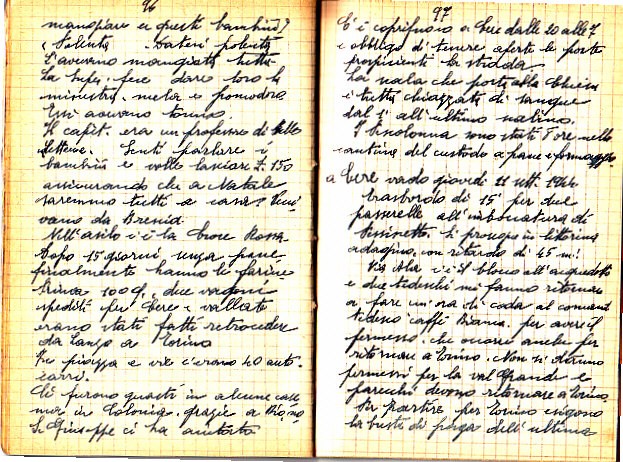 96
mangiare a questi bambini?
Polenta. Datemi polenta
L'avevano mangiata tutta
La fece dare loro la
minestra, mela e pomodoro
Essi avevano
Il capit. era un professore di belle
lettere. Sentì parlare i
bambini e volle lasciare £. 150
assicurando che a Natale
saremmo tutti a casa. Veni
vano da
Nell'asilo c'è la Croce Rossa
Dopo 15 giorni senza pane
finalmente hanno le farine
Prima 100 q. due vagoni
spediti per Cere e vallate
erano stati fatti retrocedere
da Lanzo a Torino
In piazza e vie c'erano 40 auto-
carri.
Ci furono guasti in alcune case
ma in Colonia, grazie a Dio, no
S. Giuseppe ci ha aiutato
97
C'è coprifuoco a Cere dalle 20 alle 7
e obbligo di tenere aperte le porte
prospicienti la strada
La scala che porta alla Chiesa
è tutta chiazzata di sangue
dal 1° all'ultimo scalino.
I sono stati 7 ore nelle
cantine del custode a pane e formaggio.
a Cere vado giovedì 21 sett. 1944
trasbordo di 15' per due
passerelle all'imboccatura di
Pessinetto. Si prosegue in littorina
adagino, con ritardo di 45 m!
Via Ala c'è il blocco all'acquedotto
e due tedeschi mi fanno ritornare
a fare un'ora di coda al comand
tedesco caffè per avere il
permesso, che occorre anche per
ritornare a Torino. Non si danno
permessi per la val Grande e
parecchi devono ritornare a Torino.
Per partire per Torino esigono
la busta di paga dell'ultima